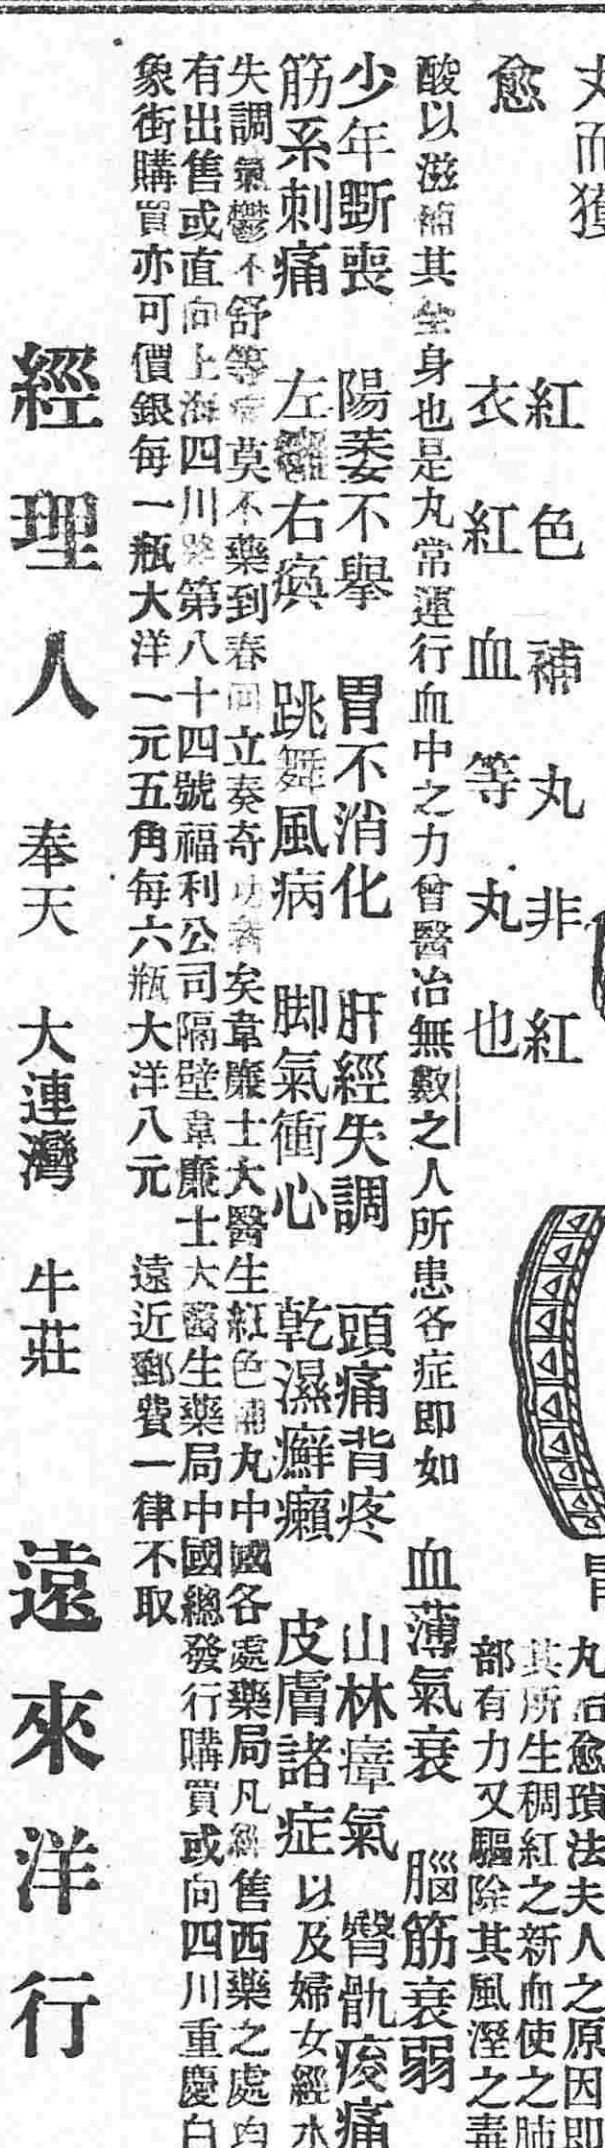 丸而獲
愈
紅色補丸非紅
衣紅血等丸也
丸治愈瑣法夫人之原因即
其所生稠紅之新血使之肺
部有力又驅除其風溼之毒
酸以滋補其全身也是丸常運行血中之力曾醫治無數之人所患各症即如 血薄氣衰 腦筋衰弱
少年斲喪 陽萎不舉 胃不消化 肝經失調 頭痛背疼 山林瘴氣 臀骩痠痛
筋系刺痛 左癱右瘓 跳舞風病 脚氣衝心 乾濕癬癩 皮膚諸症 以及婦女經水
失調氣鬱不舒等症莫不藥到春回立奏奇功者矣韋廉士大醫生紅色補丸中國各處藥局凡經售西藥之處均
有出售或直向上海四川路第八十四號福利公司隔壁韋廉士大醫生藥局中國總發行購買或向四川重慶白
象街購買亦可價銀每一瓶大洋一元五角每六瓶大洋八元 遠近郵費一律不取
經理人 奉天 大連灣 牛莊 遠來洋行